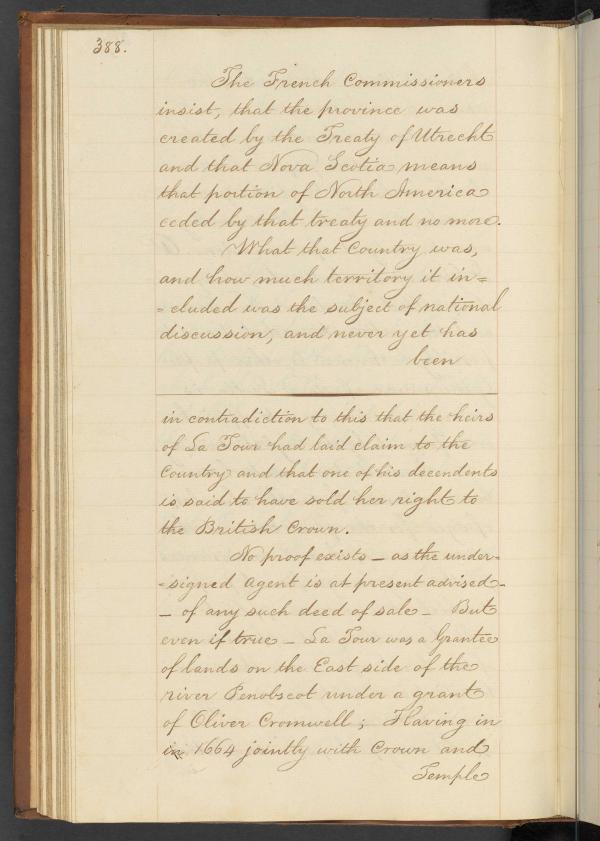 388.
The French Commissioners
insist, that the province was
created by the Treaty of Utrecht
and that Nova Scotia means
that portion of North America
ceded by that treaty and no more.
What that Country was,
and how much territory it in=
=cluded was the subject of national
discussion, and never yet has
been
in contradiction to this that the heirs
of La Tour had laid claim to the
Country and that one of his decendents
is said to have sold her right to
the British Crown.
No proof exists – as the under-
-signed Agent is at present advised –
– of any such deed of sale – But
even if true – La Tour was a Grantee
of lands on the East side of the
river Penobscot under a grant
of Oliver Cromwell; Having in
in 1664 jointly with Crown and
Temple